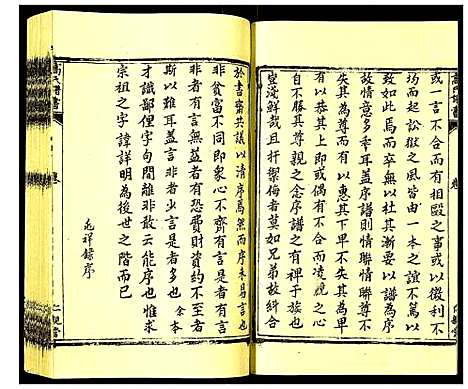 或一言不合而有相毆之事或以汗
太起訟獄之風皆由一本之誼不篤以
故如此焉而卒無以杜其漸要以譜為序
故情意多乖耳蓋序譜則情聯情聯尊不
失其為尊而有以惠其下卑不失其為卑
以恭其上即或偶有不合而凌競之心
自不勝其尊親之念序譜之有裨于族也
豈淺鮮哉且扞禦侮者莫如兄弟故糾合
於書齋共議以清序焉然而序未易言也
非貧富不同即衆心不齊言有不至者
非者有言無益者有恐費財資約不至者
斯以難耳蓋言非易言少言是者多也余本
才識鄙俚字句間離非敢云能序也惟求
宗祖之字諱詳明為後世之階而已
兆祥錄序
高氏譜書
卷